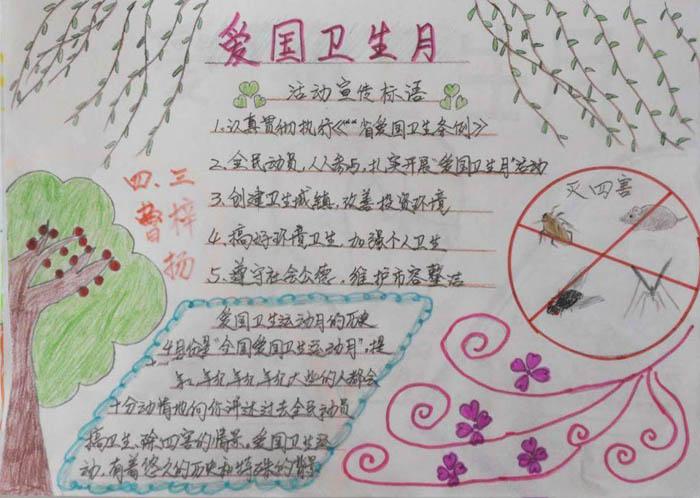 爱国卫生月
活动宣传标语
1、认真贯彻执行《**省爱国卫生条例》
2、全民动员,人人参与,扎实开展"爱国卫生月"活动
3、创建卫生城镇,改善投资环境
4、搞好环境卫生,加强个人卫生
5、遵守社会公德,维护市容整洁
四、三
曹梓扬
灭四害
爱国卫生运动月的历史
4月份是"全国爱国卫生运动月",提
起,年纪年纪年纪大些的人都会
十分动情地向你讲述过去全民动员
搞卫生、除四害的情景,爱国卫生运
动,有着悠久的历史和特殊的背景